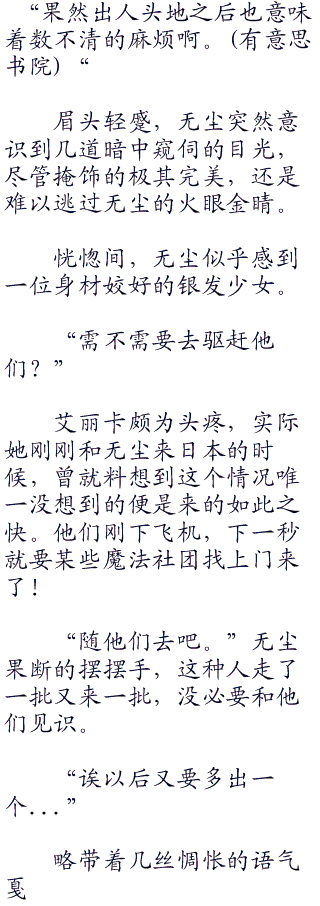 “果然出人头地之后也意味
着数不清的麻烦啊。(有意思
书院) “
眉头轻蹙，无尘突然意
识到几道暗中窥伺的目光，
尽管掩饰的极其完美，还是
难以逃过无尘的火眼金睛。
恍惚间，无尘似乎感到
一位身材姣好的银发少女。
“需不需要去驱赶他
们？”
艾丽卡颇为头疼，实际
她刚刚和无尘来日本的时
候，曾就料想到这个情况唯
一没想到的便是来的如此之
快。他们刚下飞机，下一秒
就要某些魔法社团找上门来
了！
“随他们去吧。”无尘
果断的摆摆手，这种人走了
一批又来一批，没必要和他
们见识。
“诶以后又要多出一
个...”
略带着几丝惆怅的语气
戛